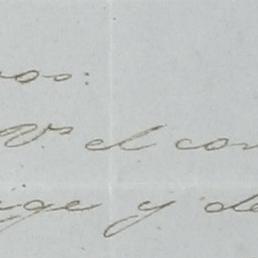 ros:
Vs el con
ige y de